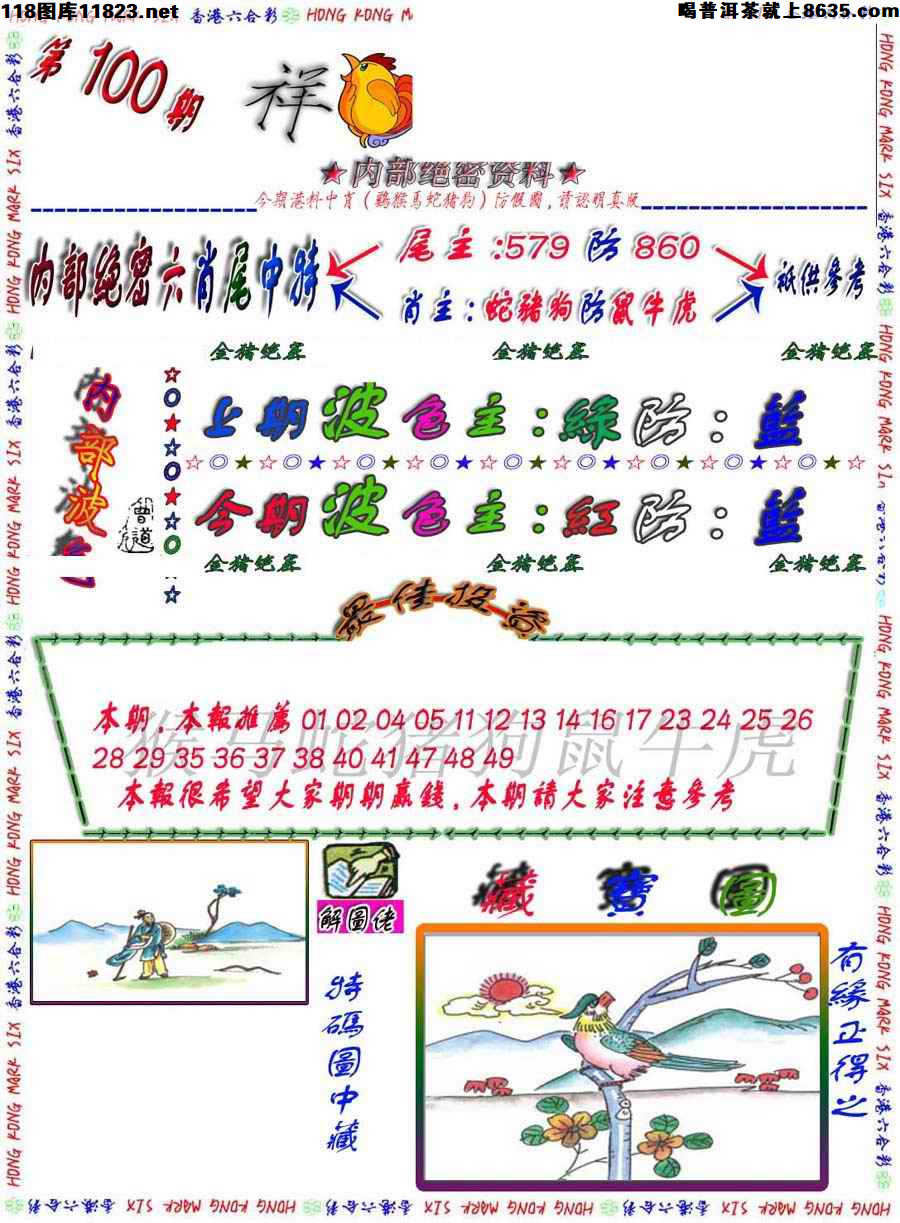 118图库11823.net
香港六合彩 HONG KONG M
喝普洱茶就上8635.com
第100期
祥
★内部绝密资料★
今期港料中肖(鷄猴馬蛇猪狗)防假圖,請認明真版
内部绝密六肖尾中特
尾主:579防860
肖主:蛇豬狗防鼠牛虎
祗供參考
金猪绝密 金猪绝密 金猪绝密
内部波色
曾道
上期波色主:綠防:藍
☆◎★☆◎★☆◎★☆◎★☆◎★☆◎★☆◎★☆◎★☆◎☆
今期波色主:紅防:藍
金猪绝密 金猪绝密 金猪绝密
最佳投资
猴马蛇猪狗鼠牛虎
本期,本報推薦 01 02 04 05 11 12 13 14 16 17 23 24 25 26
28 29 35 36 37 38 40 41 47 48 49
本報很希望大家期期贏錢,本期請大家注意參考
解圖佬
特碼圖中藏
藏寶圖
有緣正得之
香港六合彩 HONG KONG MARK SIX